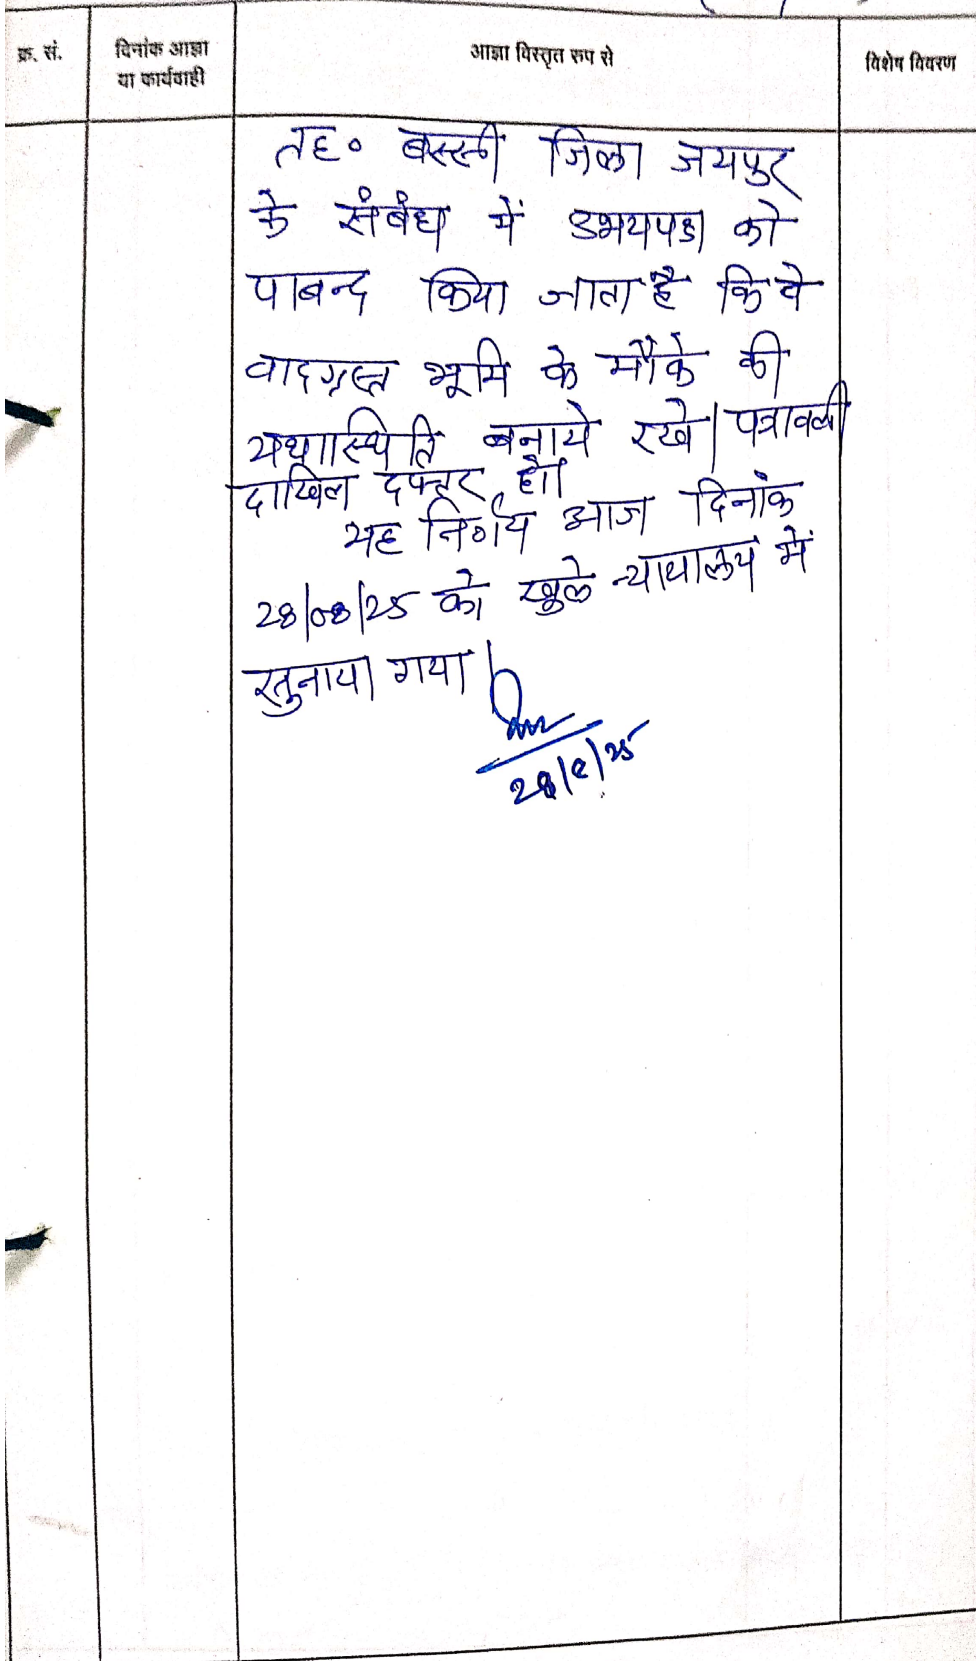 क्र. सं.
दिनांक आज्ञा
या कार्यवाही
आज्ञा विस्तृत रुप से
विशेष विवरण
तह० बस्सी जिला जयपुर
के संबंध में उभयपक्ष को
पाबन्द किया जाता है कि वे
वादग्रस्त भूमि के मौके की
यथास्थिति बनाये रखे। पत्रावली
दाखिल दफ्तर हो।
यह निर्णय आज दिनांक
28/08/25 को खुले न्यायालय में
सुनाया गया।
28/8/25